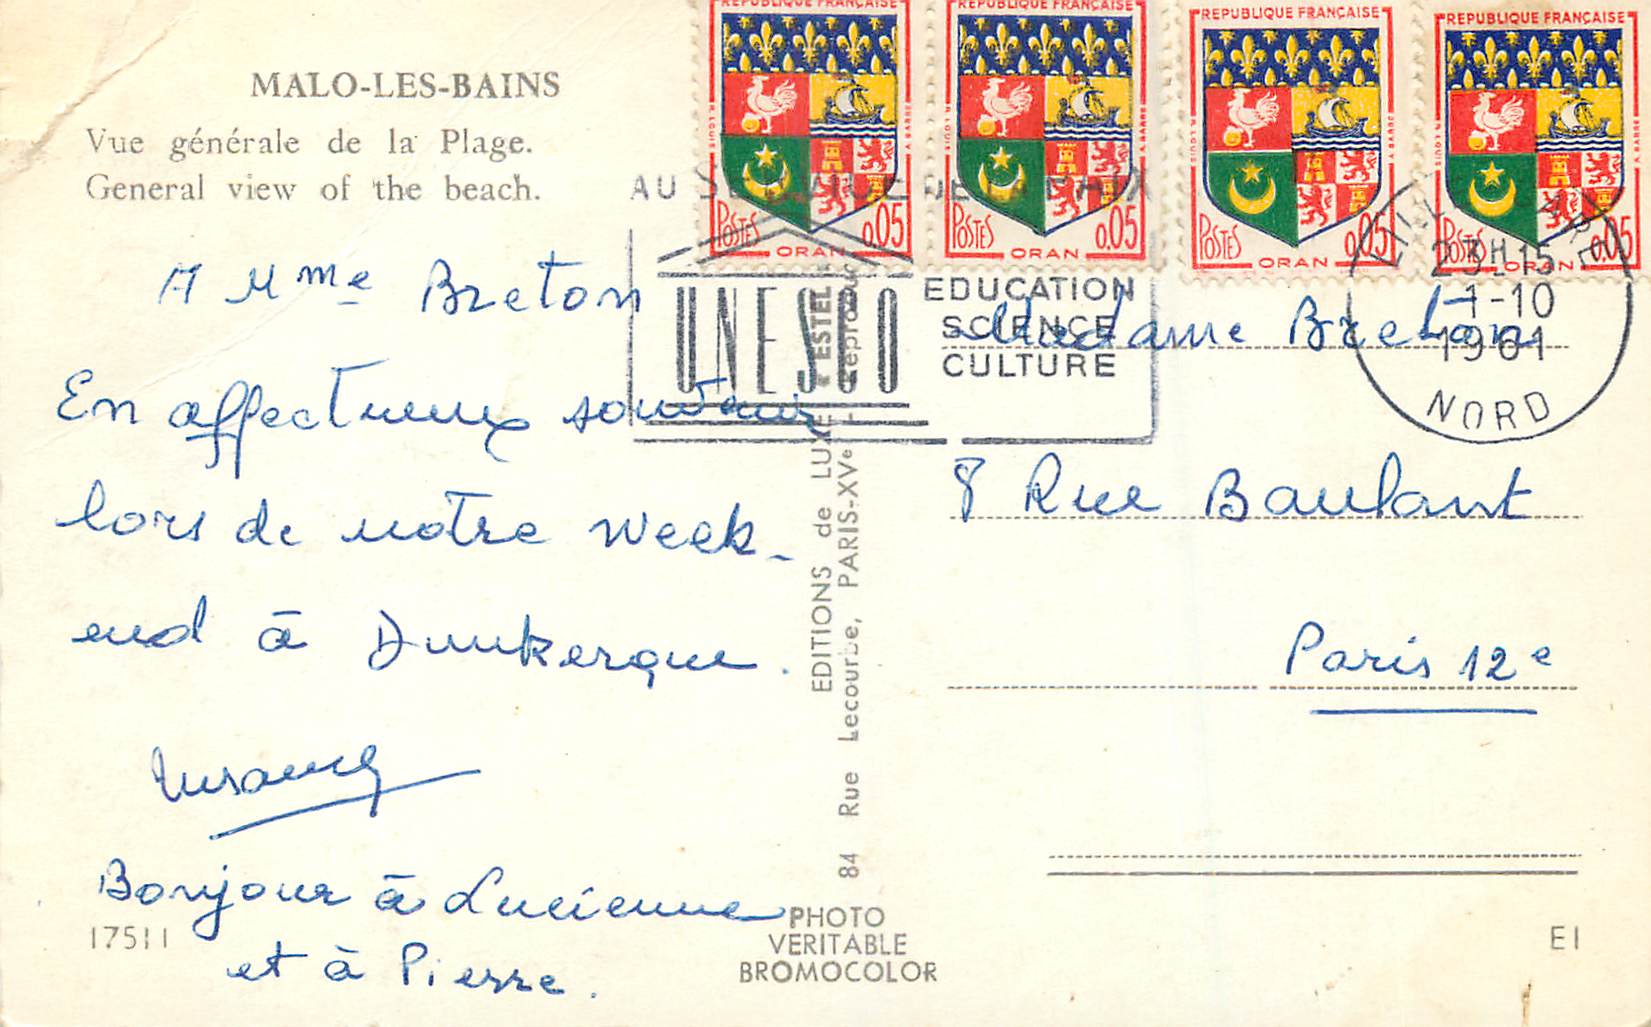 MALO-LES-BAINS
Vue générale de la Plage.
General view of the beach.
A Mme Breton
En affectueux souvenir
lors de notre week-
end à Dunkerque.
Bonjour à Lucienne
et à Pierre.
17511
REPUBLIQUE FRANÇAISE
POSTES
0.05
ORAN
REPUBLIQUE FRANÇAISE
POSTES
0.05
ORAN
REPUBLIQUE FRANÇAISE
POSTES
0.05
ORAN
REPUBLIQUE FRANÇAISE
POSTES
0.05
ORAN
AU SERVICE DE LA PAIX
UNESCO
EDUCATION
SCIENCE
CULTURE
23H15
1-10
1961
NORD
EDITIONS de LUXE "ESTEL"
84 Rue Lecourbe, PARIS-XVe - Reproduc
PHOTO
VERITABLE
BROMOCOLOR
Madame Breton
8 Rue Baulant
Paris 12e
EI